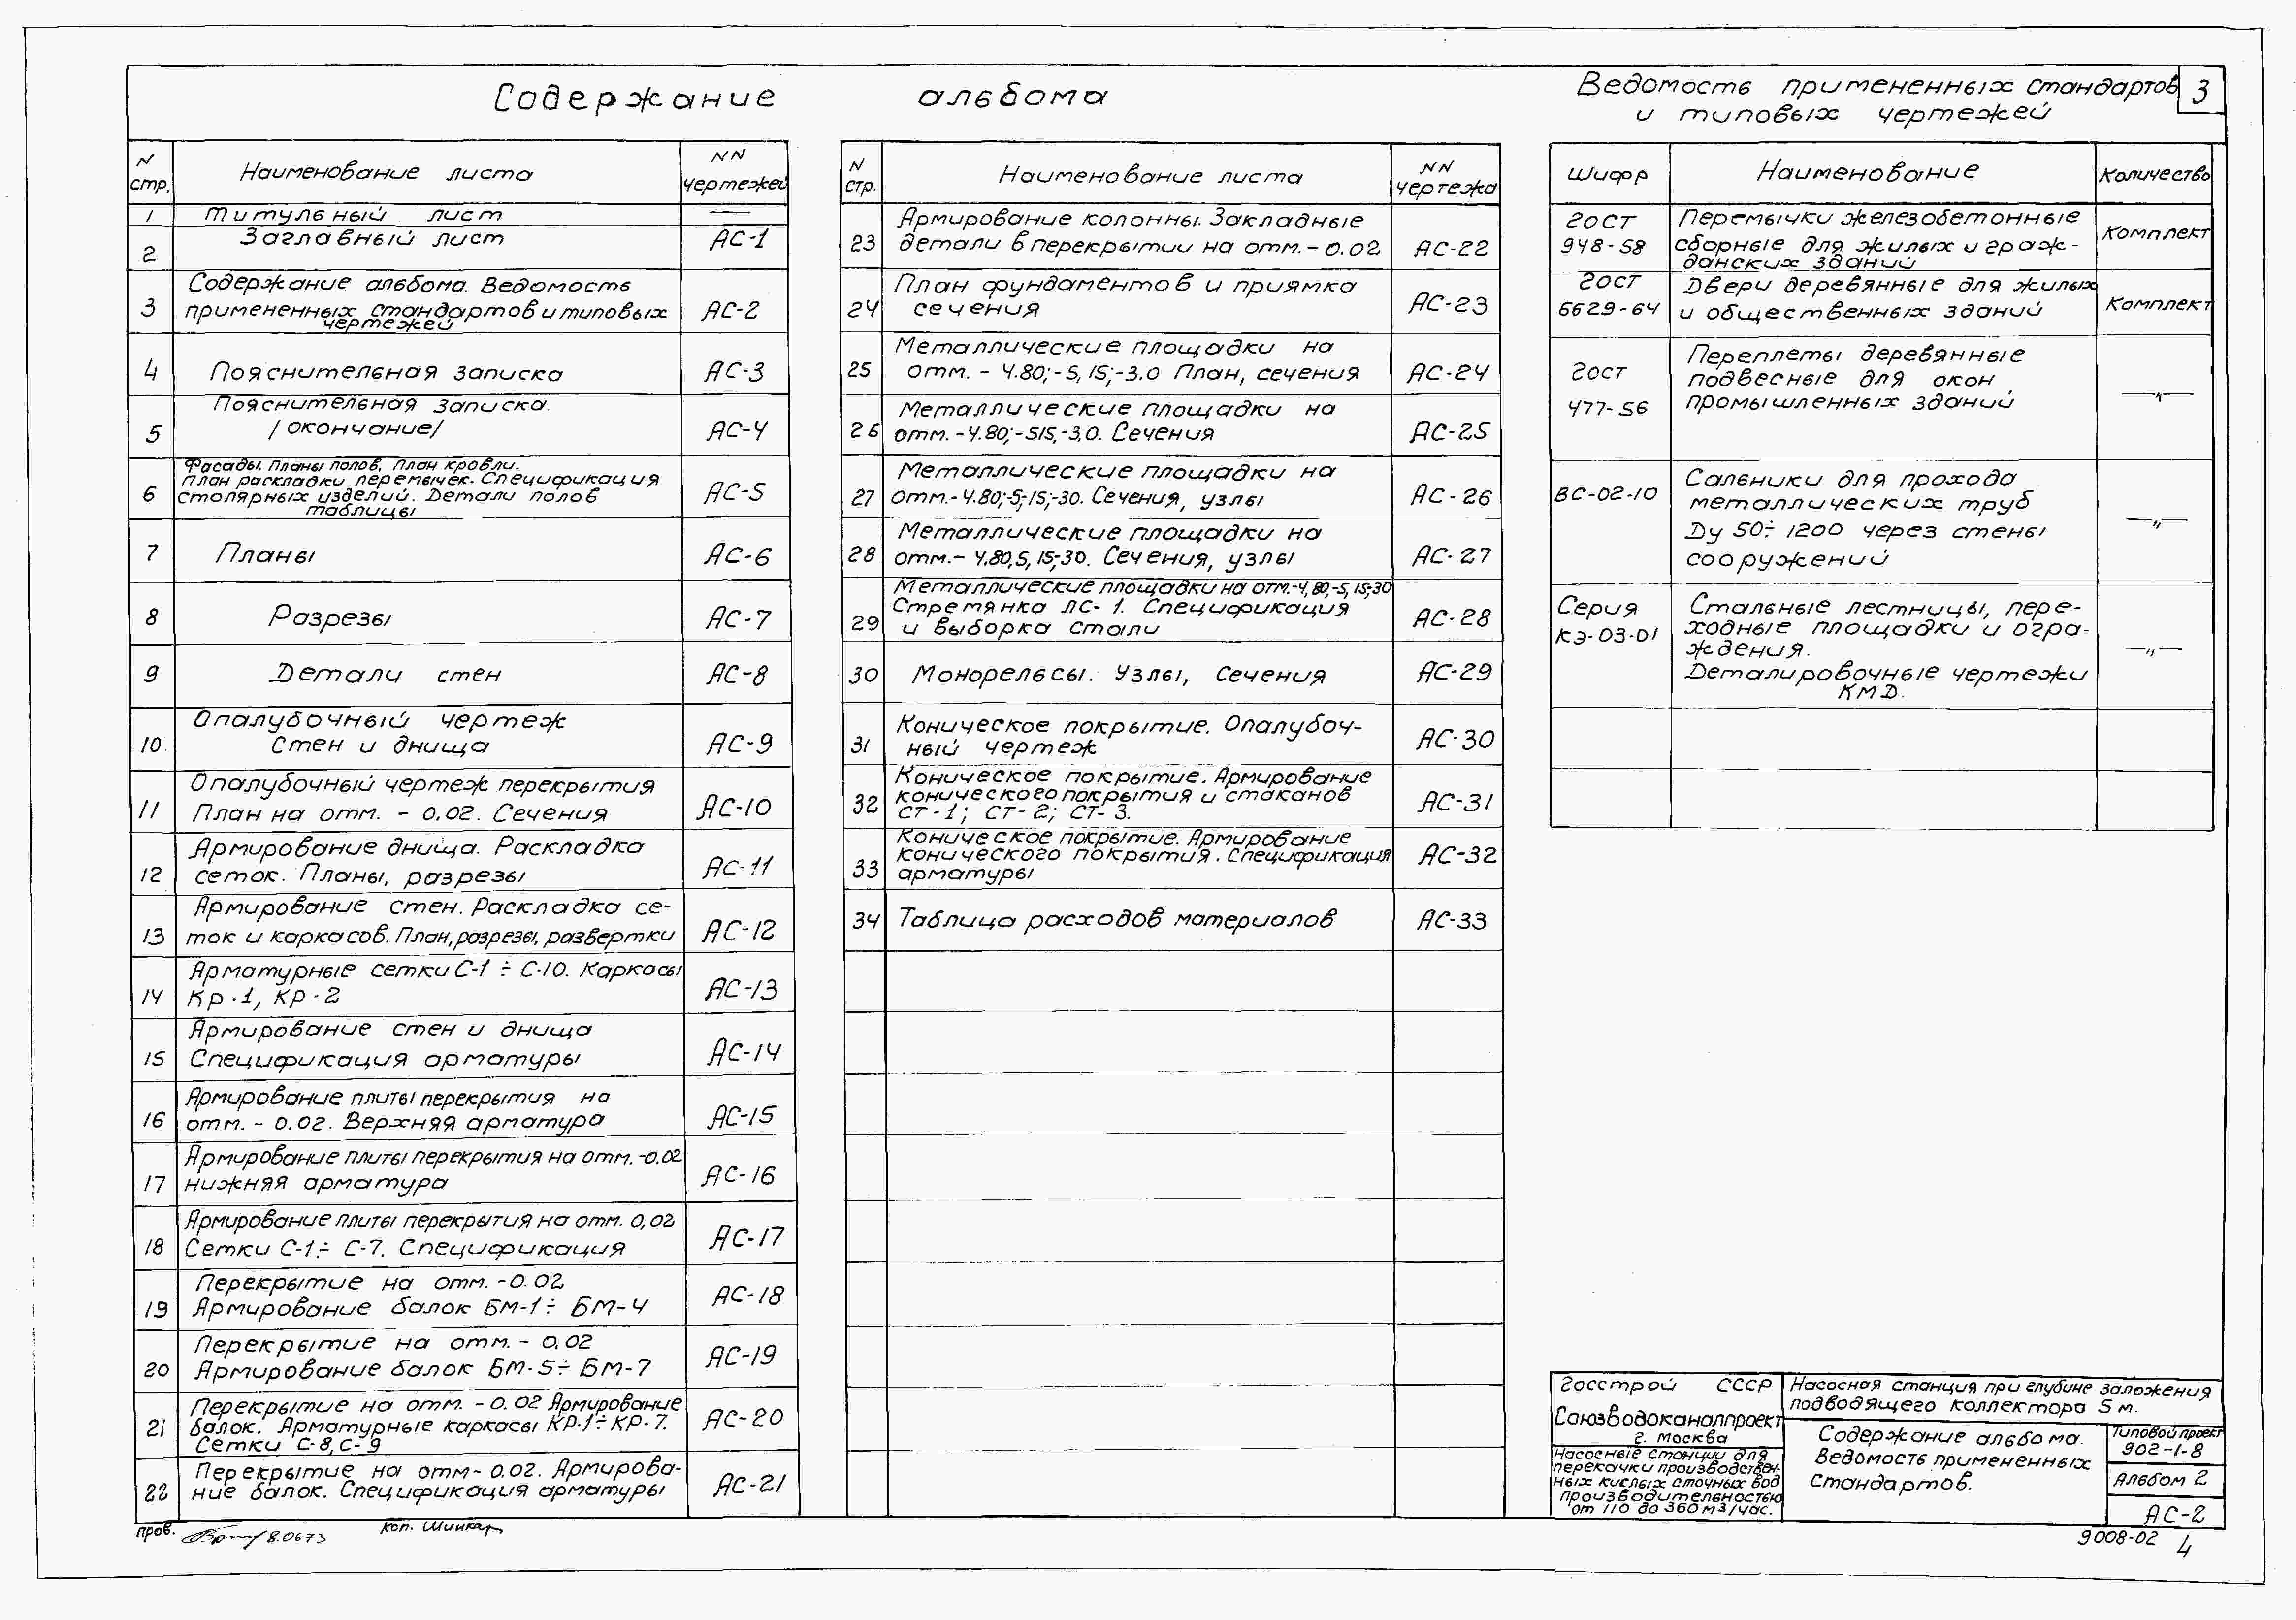 Содержание альбома
Ведомость примененных стандартов
и типовых чертежей
3
N стр.
Наименование листа
NN чертежей
1 Титульный лист —
2 Заглавный лист АС-1
Содержание альбома. Ведомость
3 примененных стандартов и типовых АС-2
чертежей
4 Пояснительная записка АС-3
Пояснительная записка.
5 /окончание/ АС-4
Фасады. Планы полов, план кровли.
План раскладки перемычек. Спецификация
6 столярных изделий. Детали полов АС-5
таблицы
7 Планы АС-6
8 Разрезы АС-7
9 Детали стен АС-8
Опалубочный чертеж
10. Стен и днища АС-9
Опалубочный чертеж перекрытия
11 План на отм. - 0.02. Сечения АС-10
Армирование днища. Раскладка
12 сеток. Планы, разрезы АС-11
Армирование стен. Раскладка се-
13 ток и каркасов. План, разрезы, развертки АС-12
Арматурные сетки С-1 ÷ С-10. Каркасы
14 Кр-1, Кр-2 АС-13
Армирование стен и днища
15 Спецификация арматуры АС-14
Армирование плиты перекрытия на
16 отм. - 0.02. Верхняя арматура АС-15
Армирование плиты перекрытия на отм. -0.02
17 нижняя арматура АС-16
Армирование плиты перекрытия на отм. 0,02
18 Сетки С-1 ÷ С-7. Спецификация АС-17
Перекрытие на отм. -0.02
19 Армирование балок БМ-1 ÷ БМ-4 АС-18
Перекрытие на отм. - 0.02
20 Армирование балок БМ-5 ÷ БМ-7 АС-19
Перекрытие на отм. - 0.02 Армирование
21 балок. Арматурные каркасы КР-1 ÷ КР-7. АС-20
Сетки С-8, С-9
Перекрытие на отм - 0.02. Армирова-
22 ние балок. Спецификация арматуры АС-21
N стр.
Наименование листа
NN чертежа
Армирование колонны. Закладные
23 детали в перекрытии на отм. - 0.02 АС-22
План фундаментов и приямка
24 сечения АС-23
Металлические площадки на
25 отм. - 4.80; -5,15; -3.0 План, сечения АС-24
Металлические площадки на
26 отм. -4.80; -515, -3,0. Сечения АС-25
Металлические площадки на
27 отм. - 4.80; -5; -15; -30. Сечения, узлы АС-26
Металлические площадки на
28 отм. - 4.80, 5, 15; -30. Сечения, узлы АС-27
Металлические площадки на отм. -4,80, -5, 15; -30
Стремянка ЛС-1. Спецификация
29 и выборка стали АС-28
30 Монорельсы. Узлы, Сечения АС-29
Коническое покрытие. Опалубоч-
31 ный чертеж АС-30
Коническое покрытие. Армирование
32 конического покрытия и стаканов АС-31
СТ-1; СТ-2; СТ-3.
Коническое покрытие. Армирование
конического покрытия. Спецификация АС-32
33 арматуры
34 Таблица расходов материалов АС-33
Шифр Наименование Количество
ГОСТ Перемычки железобетонные
948-58 сборные для жилых и граж- Комплект
данских зданий
ГОСТ Двери деревянные для жилых
6629-64 и общественных зданий Комплект
Переплеты деревянные
ГОСТ подвесные для окон
477-56 промышленных зданий —"—
Сальники для прохода
ВС-02-10 металлических труб
Ду 50 ÷ 1200 через стены —"—
сооружений
Серия Стальные лестницы, пере-
КЭ-03-01 ходные площадки и огра-
ждения. —"—
Деталировочные чертежи
КМД.
Госстрой СССР
Союзводоканалпроект
г. Москва
Насосные станции для
перекачки производствен-
ных кислых сточных вод
производительностью
от 110 до 360 м3/час.
Насосная станция при глубине заложения
подводящего коллектора 5 м.
Содержание альбома.
Ведомость примененных
стандартов.
Типовой проект
902-1-8
Альбом 2
АС-2
пров. 8.0673 Коп. Шинкар
9008-02 4